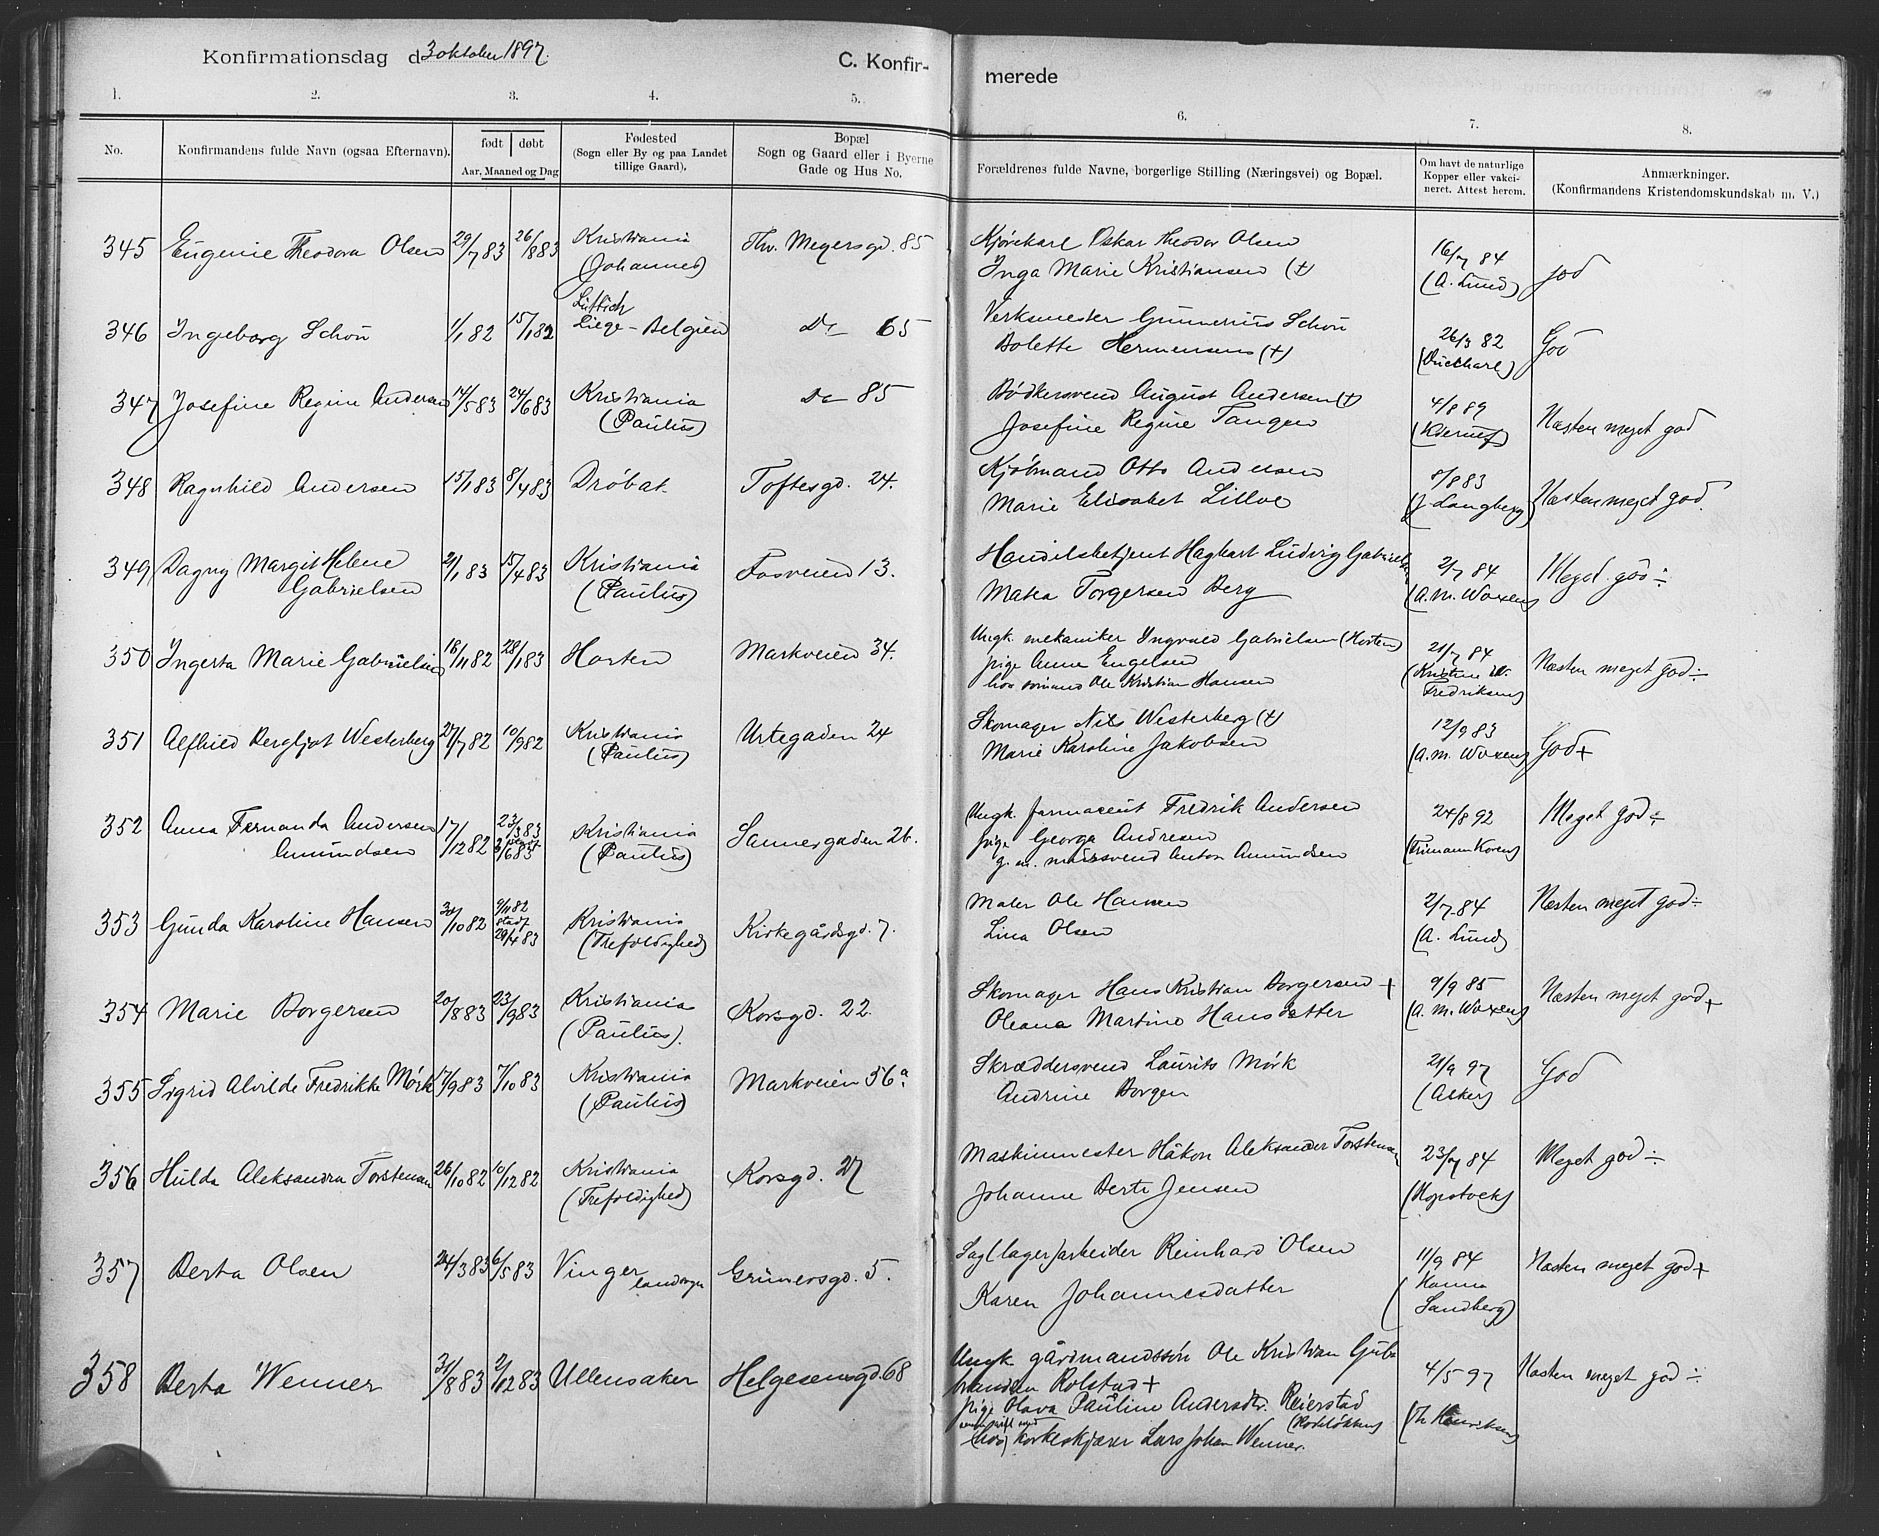 Konfirmationsdag d. 3 oktober 1897. C. Konfir- merede
1. 2. 3. 4. 5. 6. 7. 8.
No. Konfirmandens fulde Navn (ogsaa Efternavn). født døbt Aar, Maaned og Dag Fødested (Sogn eller By og paa Landet tillige Gaard). Bopæl Sogn og Gaard eller i Byerne Gade og Hus No. Forældrenes fulde Navne, borgerlige Stilling (Næringsvei) og Bopæl. Om havt de naturlige Kopper eller vakcineret. Attest herom. Anmærkninger. (Konfirmandens Kristendomskundskab m. V.)
345 Eugenie Theodora Olsen 29/7 83 26/8 83 Kristiania (Johannes) Thv. Meyersgd. 85 Kjørekarl Oskar Theodor Olsen 16/7 84 god
Inga Marie Kristiansen (+) (A. Lund)
346 Ingeborg Schou 1/1 82 15/1 82 Lüttich Liege - Belgien Do 65 Verksmester Gunnerius Schou 26/3 82 God
Bolette Hermensens (+)
347 Josefine Regine Andersen 14/5 83 24/6 83 Kristiania (Paulus) Do 85 Bødkersvend August Andersen (+) 4/8 89 Næsten meget god
Josefine Regine Tangen (Kierulf)
348 Ragnhild Andersen 15/1 83 8/4 83 Drøbak Toftesgd. 24. Kjøbmand Otto Andersen 8/8 83 Næsten meget god.
Marie Elisabet Lilloe (J Langberg)
349 Dagny Margit Helene 2/1 83 15/4 83 Kristiania (Paulus) Fosveien 13. Handelsbetjent Hagbart Ludvig Gabrielsen 2/7 84 Meget god ÷
Gabrielsen Matea Torgersen Berg (A. M. Woxen)
350 Ingerta Marie Gabrielsen 16/11 82 28/1 83 Horten Markveien 34. Ungk. mekaniker Ingvald Gabrielsen (Horten) 21/7 84 Næsten meget god ÷
pige Anna Engelsen (Kristine Fredriksen)
hos sømand Ole Kristian Hansen
351 Alfhild Bergljot Westerberg 27/7 82 10/9 82 Kristiania (Paulus) Urtegaden 24 Skomager Nils Westerberg (+) 12/9 83 God +
Marie Karoline Jakobsen (A. M. Woxen)
352 Anna Fernanda Andersen 17/12 82 23/3 83 3/6 83 Kristiania (Paulus) Sannergaden 26. Ungk. farmaceut Fredrik Andersen 24/8 92 Meget god ÷
Amundsen pige Georga Andresen
g. m. mursvend Anton Amundsen
353 Gunda Karoline Hansen 30/10 82 9/11 82 stadf. 29/4 83 Kristiania (Trefoldighed) Kirkegårdsgd. 7. Maler Ole Hansen 2/7 84 Næsten meget god ÷
Lina Olsen (A. Lund)
354 Marie Borgersen 20/8 83 23/9 83 Kristiania (Paulus). Korsgd. 22. Skomager Hans Kristian Borgersen + 9/9 85 Næsten meget god +
Oleana Martine Hansdatter (A. M. Woxen)
355 Sigrid Alvilde Fredrikke Mørk 17/9 83 7/10 83 Kristiania (Paulus) Markveien 56a. Skræddersvend Laurits Mørk 21/9 97 God
Andrine Borgen (Aker)
356 Hulda Aleksandra Torstensen 26/10 82 10/12 82 Kristiania (Trefoldighed) Korsgd. 27 Maskinmester Håkon Aleksander Torstensen 23/7 84 Meget god ÷
Johanne Berte Jensen (Kopstock)
357 Berta Olsen 24/3 83 6/5 83 Vinger landsogn Grünersgd. 5. Sag(lager)arbeider Reinhard Olsen 11/9 84 Næsten meget god +
Karen Johannesdatter (Hanna Sandberg)
358 Berta Wenner 31/8 83 2/12 83 Ullensaker Helgesensgd. 68 Ungk. gårdmandssøn Ole Kristian Gulbrandsen Rolstad + 4/5 97 Næsten meget god ÷
pige Olava Pauline Andersdtr. Reierstad (Rodeløkken) (Th Henriksen)
(hos) korkeskjærer Lars Johan Wenner.